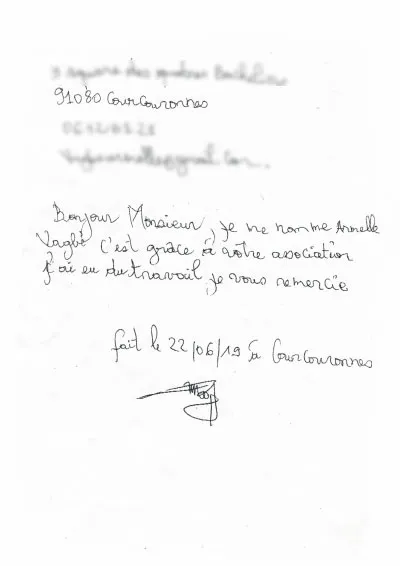 91080 CourCouronnes
Bonjour Monsieur, je me nomme Armelle
Yagbé c'est grâce à votre association
j'ai eu du travail je vous remercie
fait le 22/06/19 à CourCouronnes